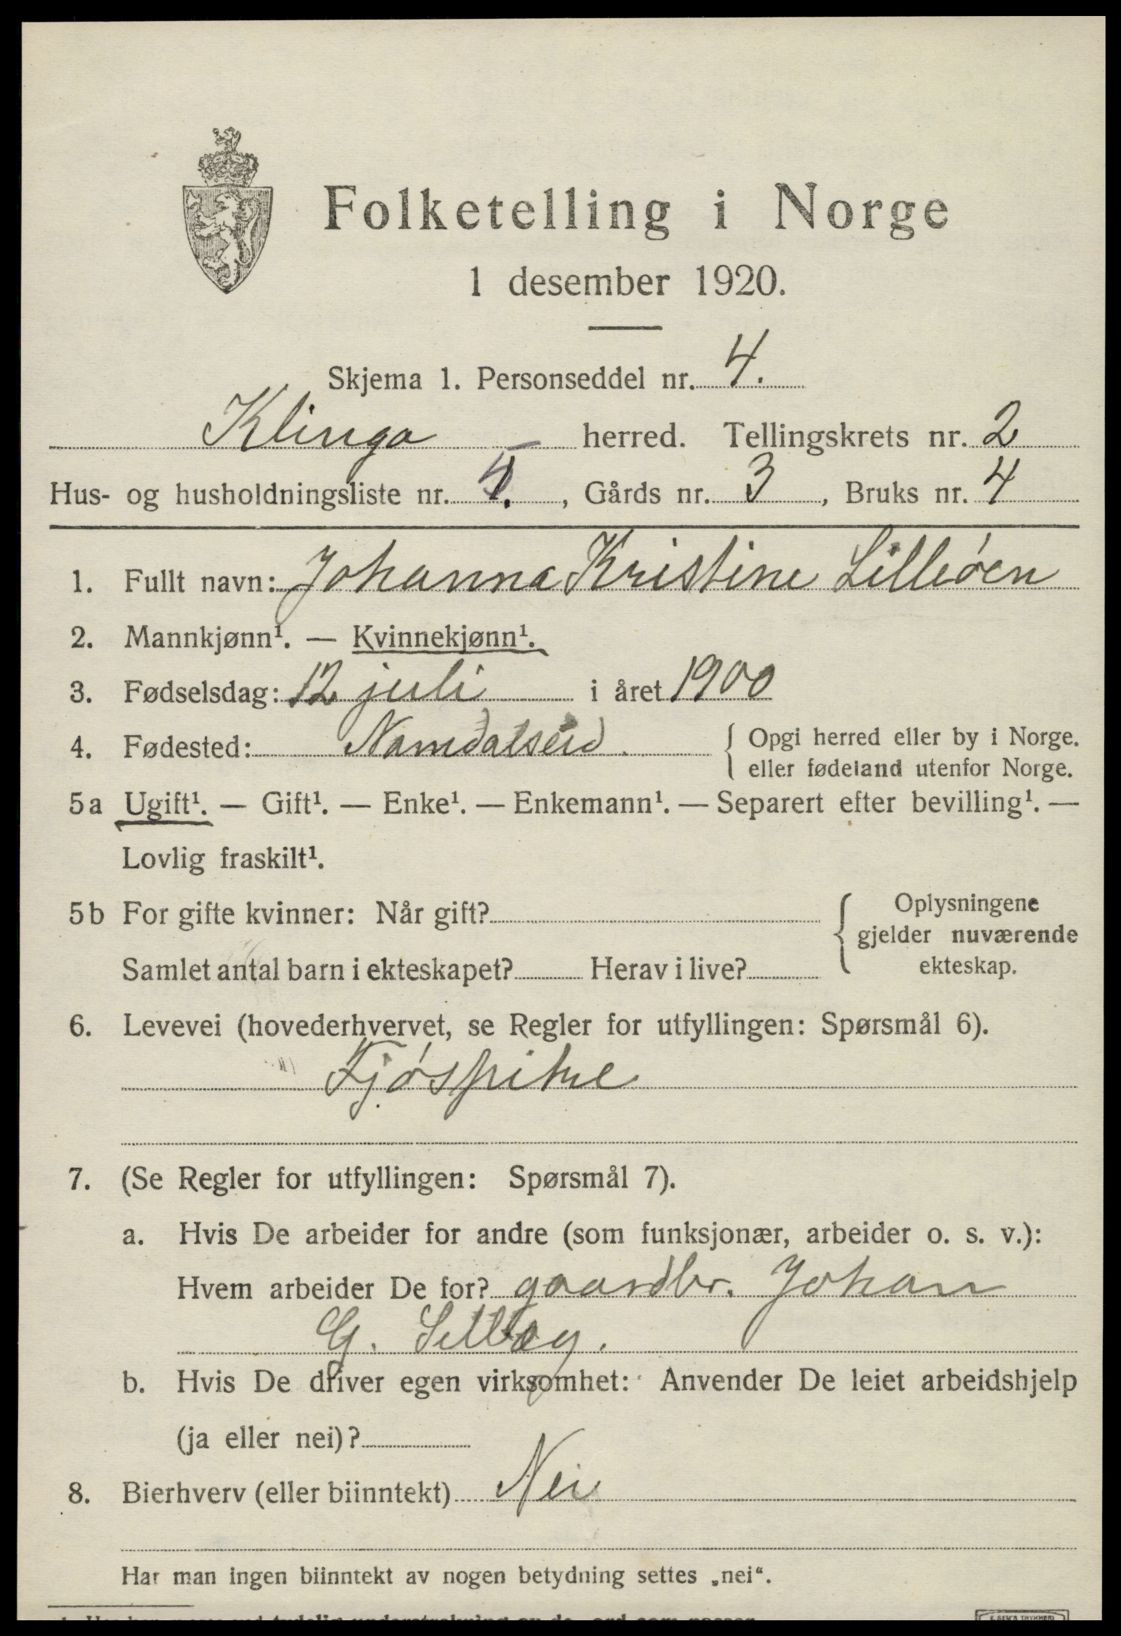 Folketelling i Norge
1 desember 1920.
Skjema 1. Personseddel nr. 4.
Klinga herred. Tellingskrets nr. 2
Hus- og husholdningsliste nr. , Gårds nr. 3, Bruks nr. 4
1. Fullt navn: Johanna Kristine Lilleøen
2. Mannkjønn¹. — Kvinnekjønn¹.
3. Fødselsdag: 12 juli i året 1900
4. Fødested: Namdalseid. { Opgi herred eller by i Norge.
eller fødeland utenfor Norge.
5a Ugift¹. — Gift¹. — Enke¹. — Enkemann¹. — Separert efter bevilling¹. —
Lovlig fraskilt¹.
5b For gifte kvinner: Når gift? { Oplysningene
gjelder nuværende
Samlet antal barn i ekteskapet? Herav i live? ekteskap.
6. Levevei (hovederhvervet, se Regler for utfyllingen: Spørsmål 6).
Fjøspike
7. (Se Regler for utfyllingen: Spørsmål 7).
a. Hvis De arbeider for andre (som funksjonær, arbeider o. s. v.):
Hvem arbeider De for? gaardbr. Johan
G.
b. Hvis De driver egen virksomhet: Anvender De leiet arbeidshjelp
(ja eller nei)?
8. Bierhverv (eller biinntekt) Nei
Har man ingen biinntekt av nogen betydning settes „nei“.